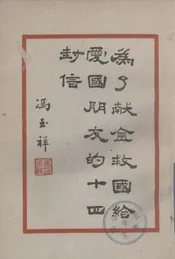 為了献金救國給
愛國朋友的十四
封信
馮玉祥